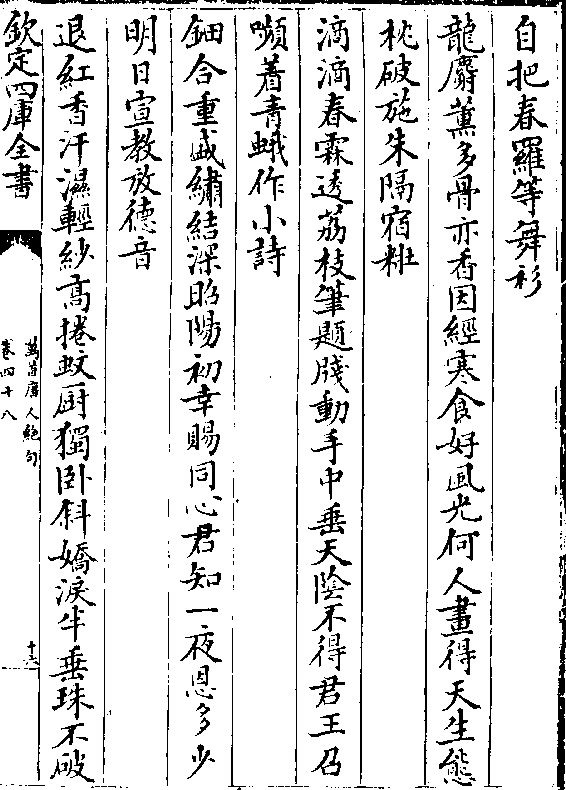 自把春羅等舞衫
龍麝薫多骨亦香因經寒食好風光何人畫得天生態
枕破施朱隔宿粧
滴滴春霖透荔枝筆題牋動手中垂天陰不得君王召
嚬着青蛾作小詩
鈿合重盛繡結深昭陽初幸賜同心君知一夜恩多少
明日宣教放德音
退紅香汗濕輕紗高捲蚊厨獨卧斜嬌淚半垂珠不破
欽定四庫全書
萬首唐人絶句
卷四十八